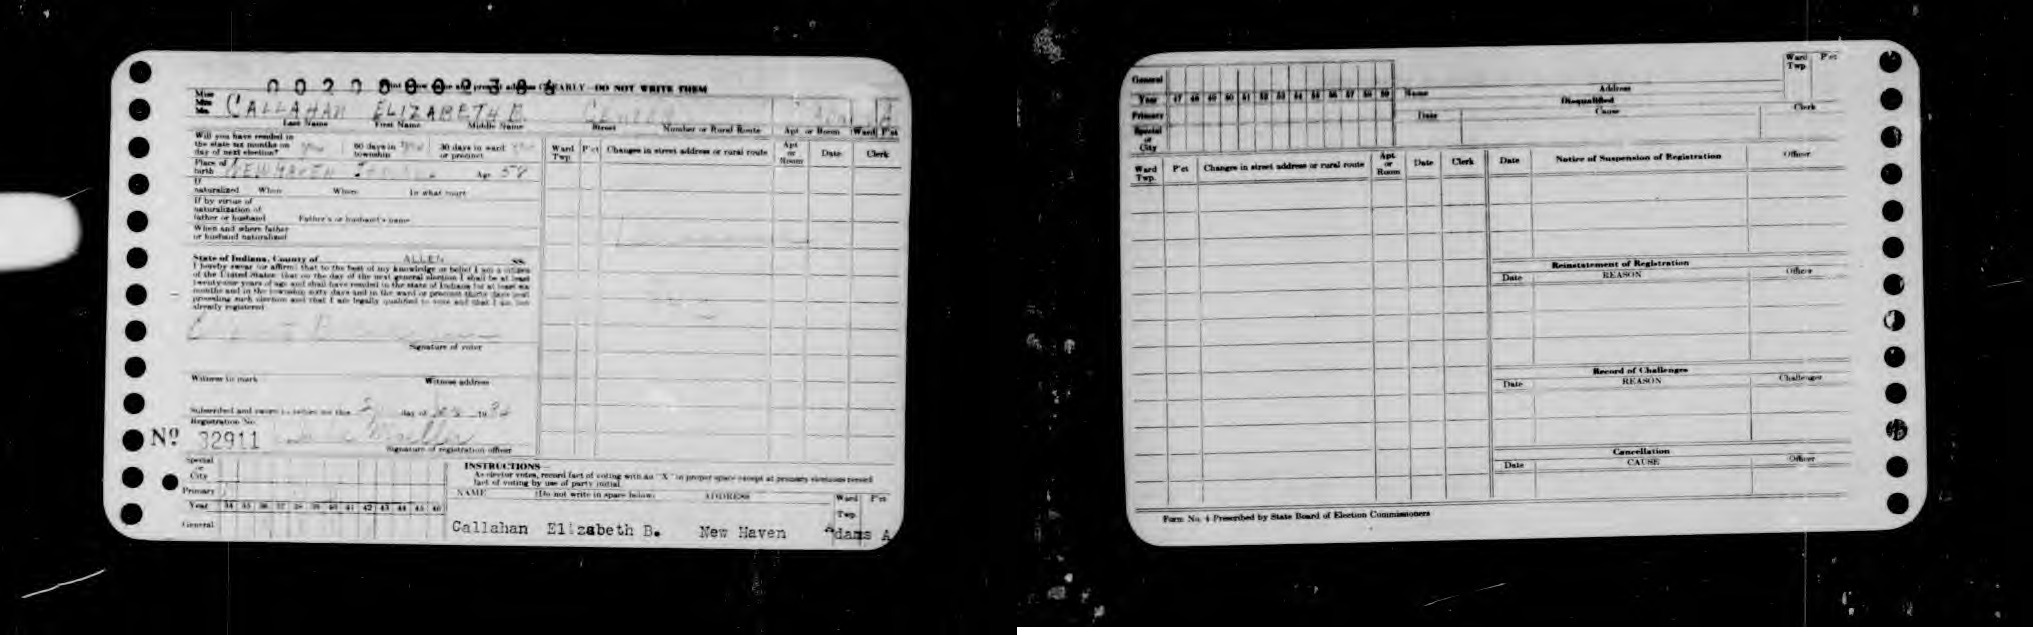 PRINT your name and present address CLEARLY—DO NOT WRITE THEM
Miss
Mrs.
Mr. CALLAHAN ELIZABETH B. CENTER A
Last Name First Name Middle Name Street Number or Rural Route Apt. or Room Ward P'ct
Will you have resided in
the state six months on
day of next election? Yes 60 days in
township 30 days in ward
or precinct
Place of
birth NEW HAVEN Age 58
If
naturalized When Where In what court
If by virtue of
naturalization of
father or husband Father's or husband's name
When and where father
or husband naturalized
State of Indiana, County of ALLEN ss.
I hereby swear (or affirm) that to the best of my knowledge or belief I am a citizen
of the United States; that on the day of the next general election I shall be at least
twenty-one years of age and shall have resided in the state of Indiana for at least six
months and in the township sixty days and in the ward or precinct thirty days next
preceding such election and that I am legally qualified to vote and that I am not
already registered
Signature of voter
Witness to mark Witness address
Subscribed and sworn to before me this day of 19
Registration No.
Nº 32911
Signature of registration officer
Ward
Twp. P'ct Changes in street address or rural route Apt.
or
Room Date Clerk
Special
or
City
Primary
Year 34 35 36 37 38 39 40 41 42 43 44 45 46
General
INSTRUCTIONS—
As elector votes, record fact of voting with an "X" in proper space except at primary elections record
fact of voting by use of party initial
NAME (Do not write in space below) ADDRESS Ward
Twp. P'ct
Callahan Elizabeth B. New Haven Adams A
General
Year 47 48 49 50 51 52 53 54 55 56 57 58 59
Primary
Special
or
City
Name Address Ward
Twp. P'ct
Disqualified
Date Cause Clerk
Ward
Twp. P'ct Changes in street address or rural route Apt.
or
Room Date Clerk
Date Notice of Suspension of Registration Officer
Reinstatement of Registration
Date REASON Officer
Record of Challenges
Date REASON Challenger
Cancellation
Date CAUSE Officer
Form No. 4 Prescribed by State Board of Election Commissioners